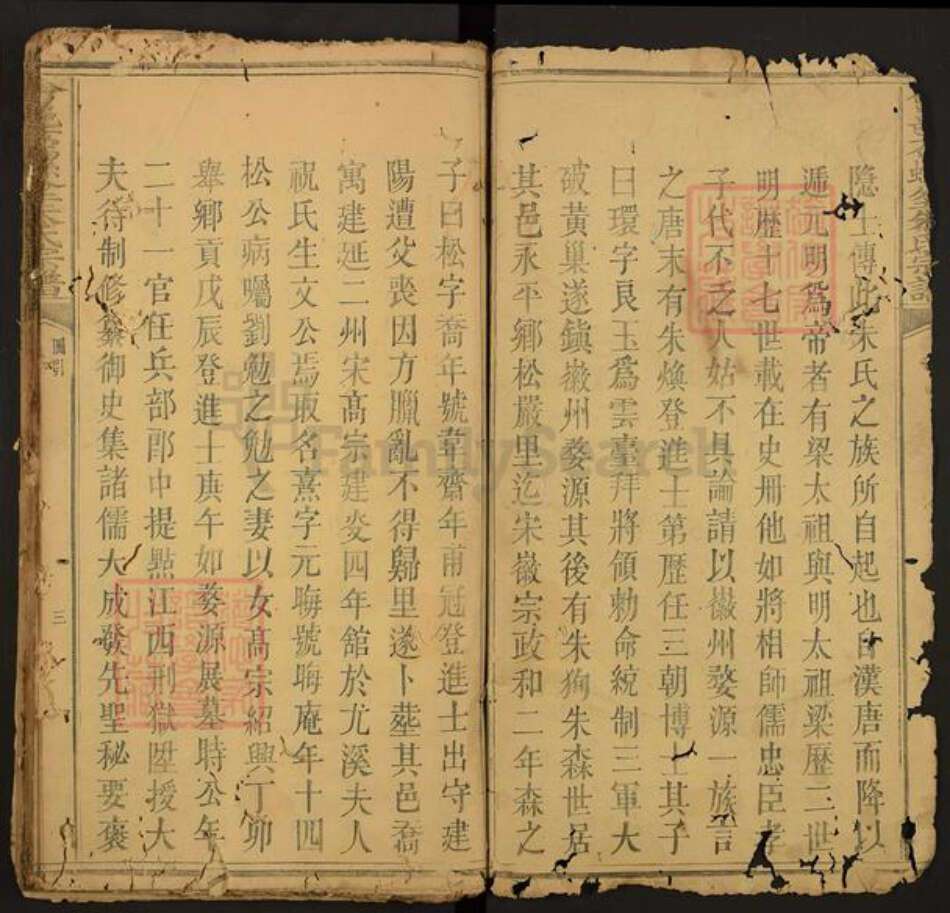 隱士傳此朱氏之族所自起也自漢唐而降以
遞元明爲帝者有梁太祖與明太祖梁歷二世
明歷十七世載在史冊他如將相師儒忠臣孝
子代不乏人姑不具論請以徽州婺源一族言
之唐末有朱煥登進士第歷任三朝博士其子
曰環字良玉爲雲臺拜將領勅命統制三軍大
破黃巢遂鎮徽州婺源其後有朱狥朱森世居
其邑永平鄉松嚴里迄宋徽宗政和二年森之
子曰松字喬年號韋齋年甫冠登進士出守建
陽遭父喪因方臘亂不得歸里遂卜塟其邑喬
寓建延二州宋高宗建炎四年舘於尤溪夫人
祝氏生文公焉取名熹字元晦號晦庵年十四
松公病囑劉勉之勉之妻以女高宗紹興丁卯
舉鄉貢戊辰登進士庚午如婺源展墓時公年
二十一官任兵部郎中提點江西刑獄陞授大
夫待制修纂御史集諸儒大成發先聖秘要褒
圖引
三
FamilySearch